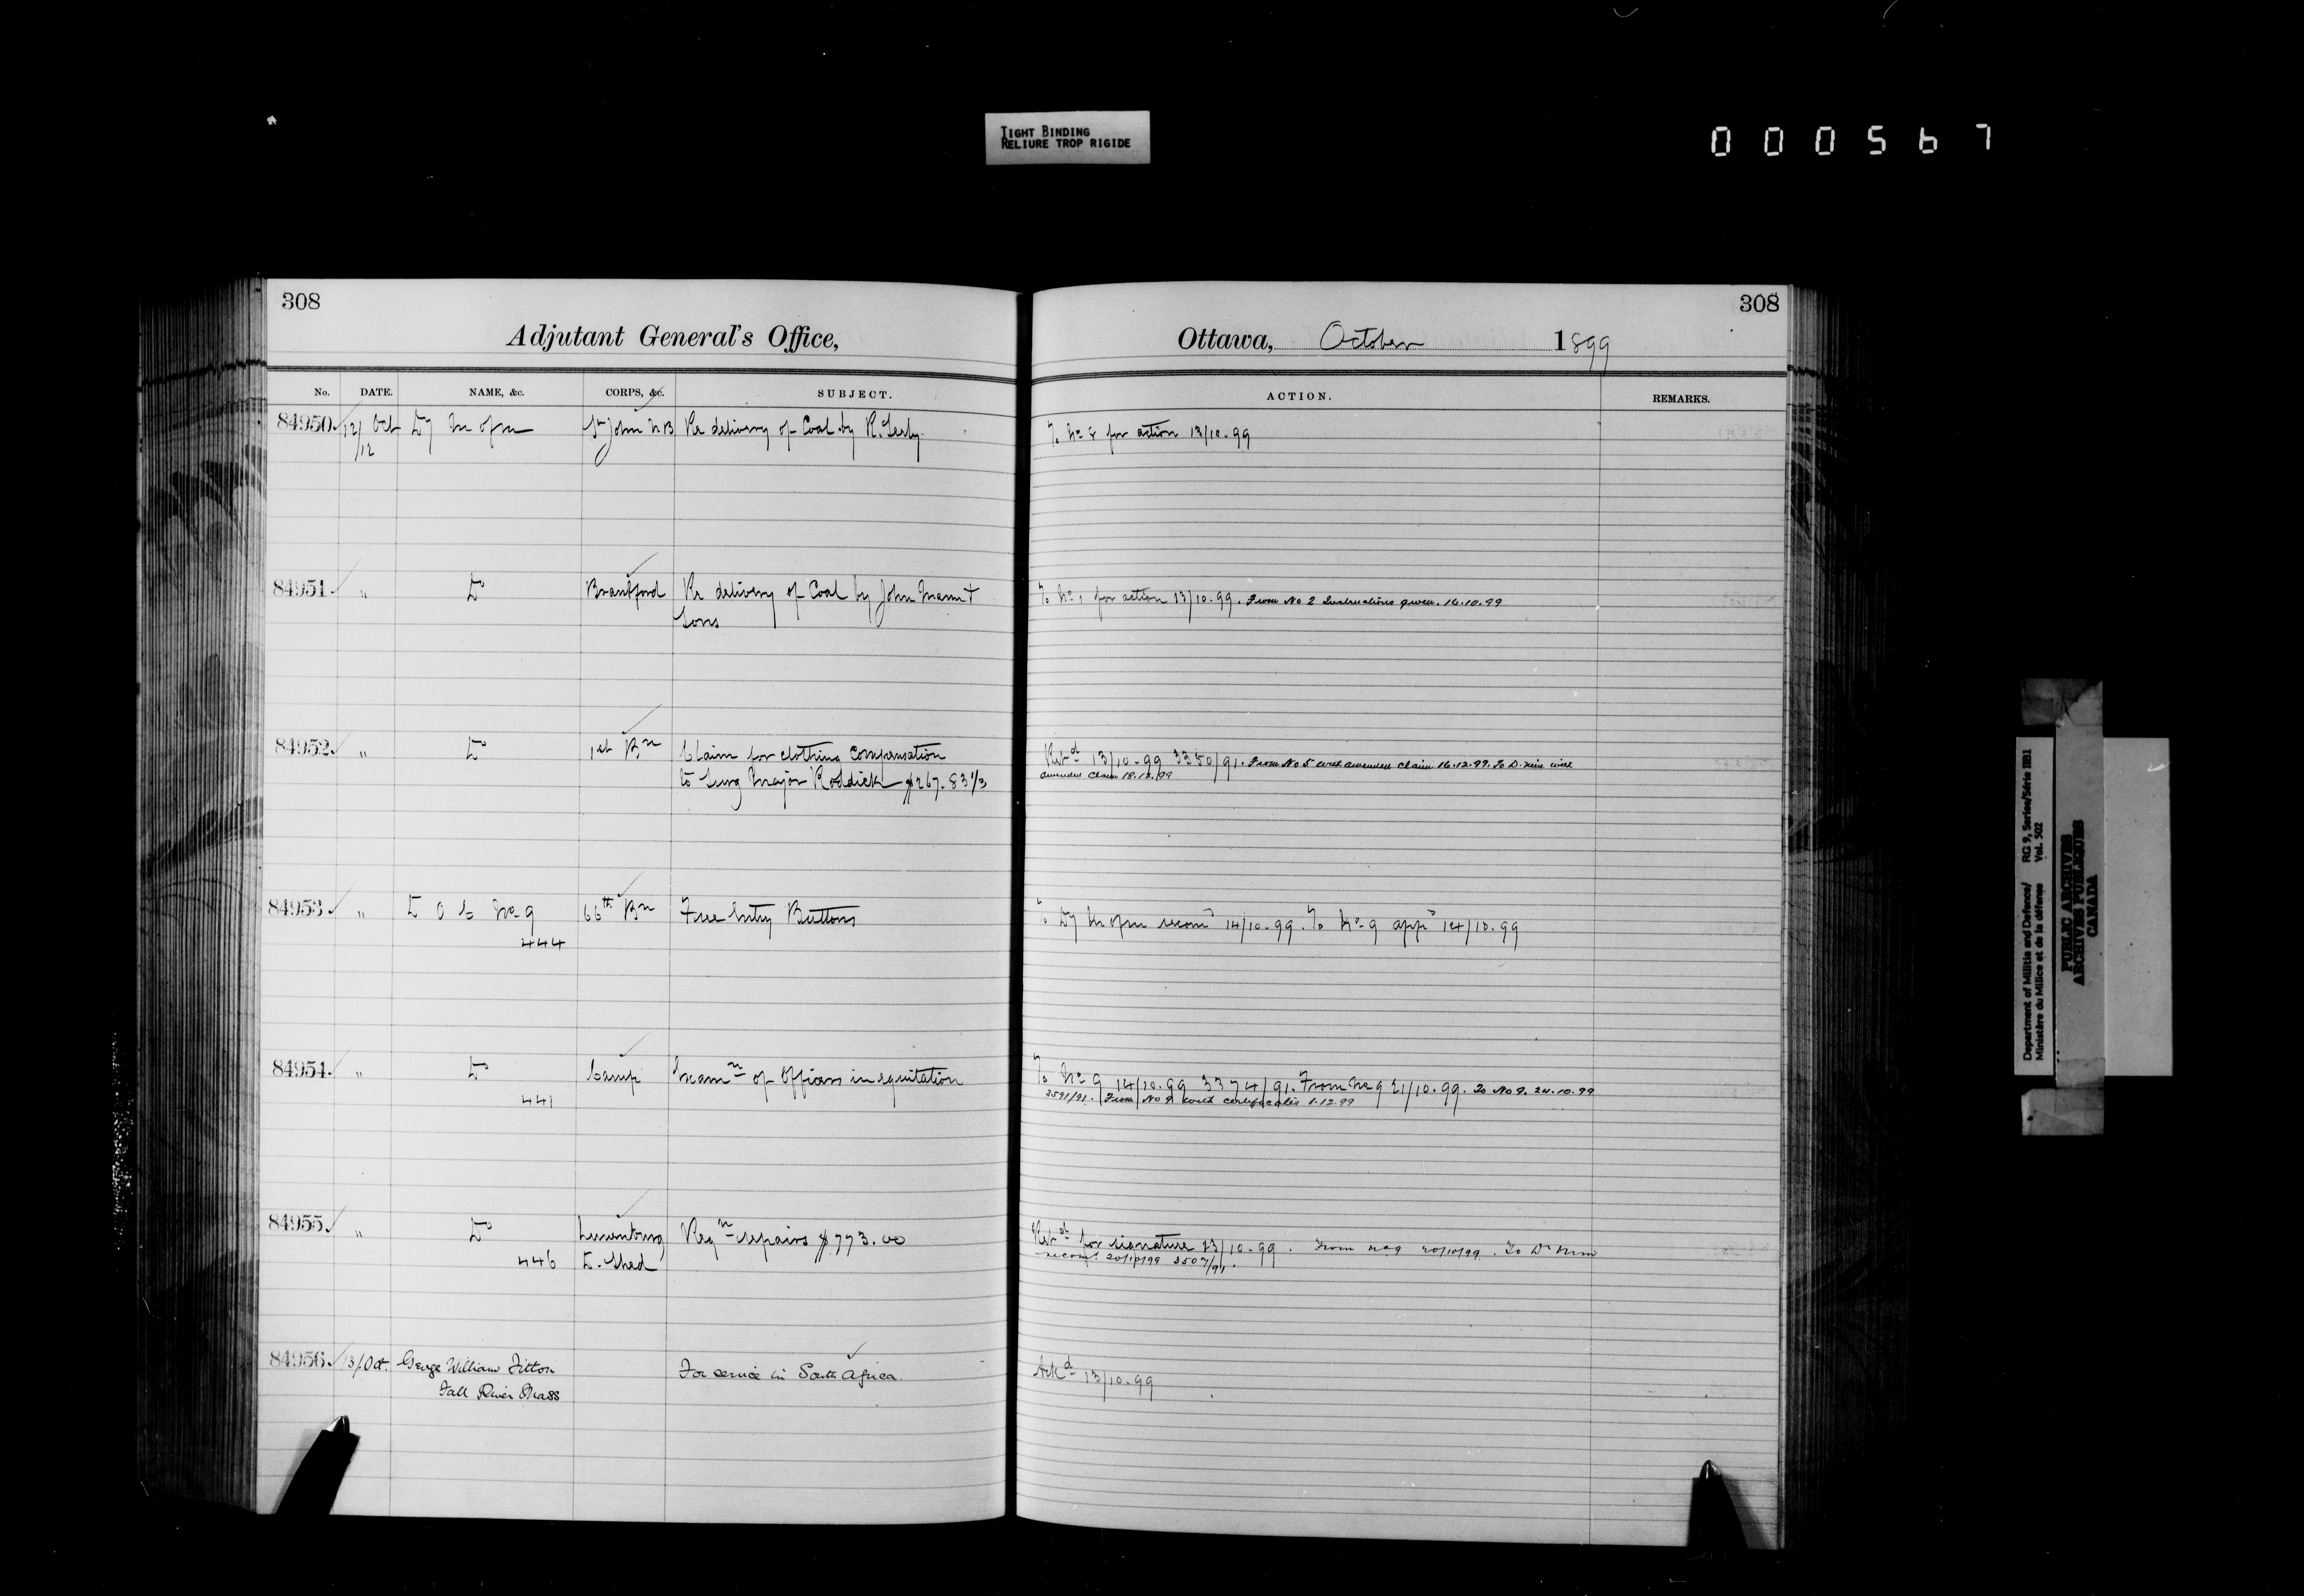 TIGHT BINDING
RELIURE TROP RIGIDE
000567
308
Adjutant General's Office,
No. DATE. NAME, &c. CORPS, &c. SUBJECT.
84950 12/Oct Dy M of M St John NB Re delivery of Coal by R.
/12
84951 " Do Brantford Re delivery of Coal by John Mann +
Sons
84952 " Do 1st Bn Claim for clothing compensation
to Surg Major Roddick $267.83 1/3
84953 " D O C No 9 66th Bn Free Entry Buttons
444
84954 " Do Camp Exam n of Officers in equitation
441
84955 " Do Lunenburg Reqn repairs $773.00
446 D. Shed
84956 13/Oct. George William Fitton For service in South Africa
Fall River Mass
308
Ottawa, October 1899
ACTION. REMARKS.
To No 8 for action 13/10.99
To No 1 for action 13/10.99. From No 2 Instructions given. 16.10.99
Retd 13/10.99 3350/91. From No 5 with amended claim 16.12.99. To D. Min with
amended claim 18.12/99
To Dy M of M recomd 14/10.99. To No 9 appd 14/10.99
To No 9 14/10.99 3374/91. From No 9 21/10.99. To No 9. 24.10.99
3591/91. From No 9 with certificates 1.12.99
Retd for signature 13/10.99. From No 9 20/10/99. To Dr Min
recomd 20/10/99 3507/91.
Ackd 13/10.99
Department of Militia and Defence/ RG 9, Series/Série IIB1
Ministère du Milice et de la défense Vol. 502
PUBLIC ARCHIVES
ARCHIVES PUBLIQUES
CANADA